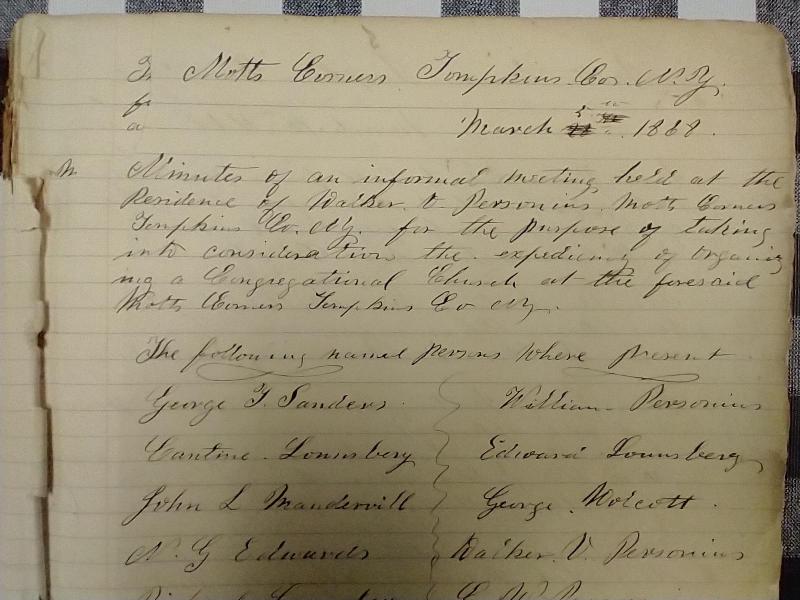 Motts Corners Tompkins Co. N.Y.
March 5 1868.
Minutes of an informal meeting held at the
Residence of Walker V Personius Motts Corners
Tompkins Co. N.Y. for the purpose of taking
into consideration the expediency of organiz
ing a Congregational Church at the foresaid
Motts Corners Tompkins Co N.Y.
The following named persons where present
George F. Sanders William Personius
Cantine Lounsbery Edward Lounsberg
John L Mandervill George Wolcott
N. G Edwards Walker V. Personius